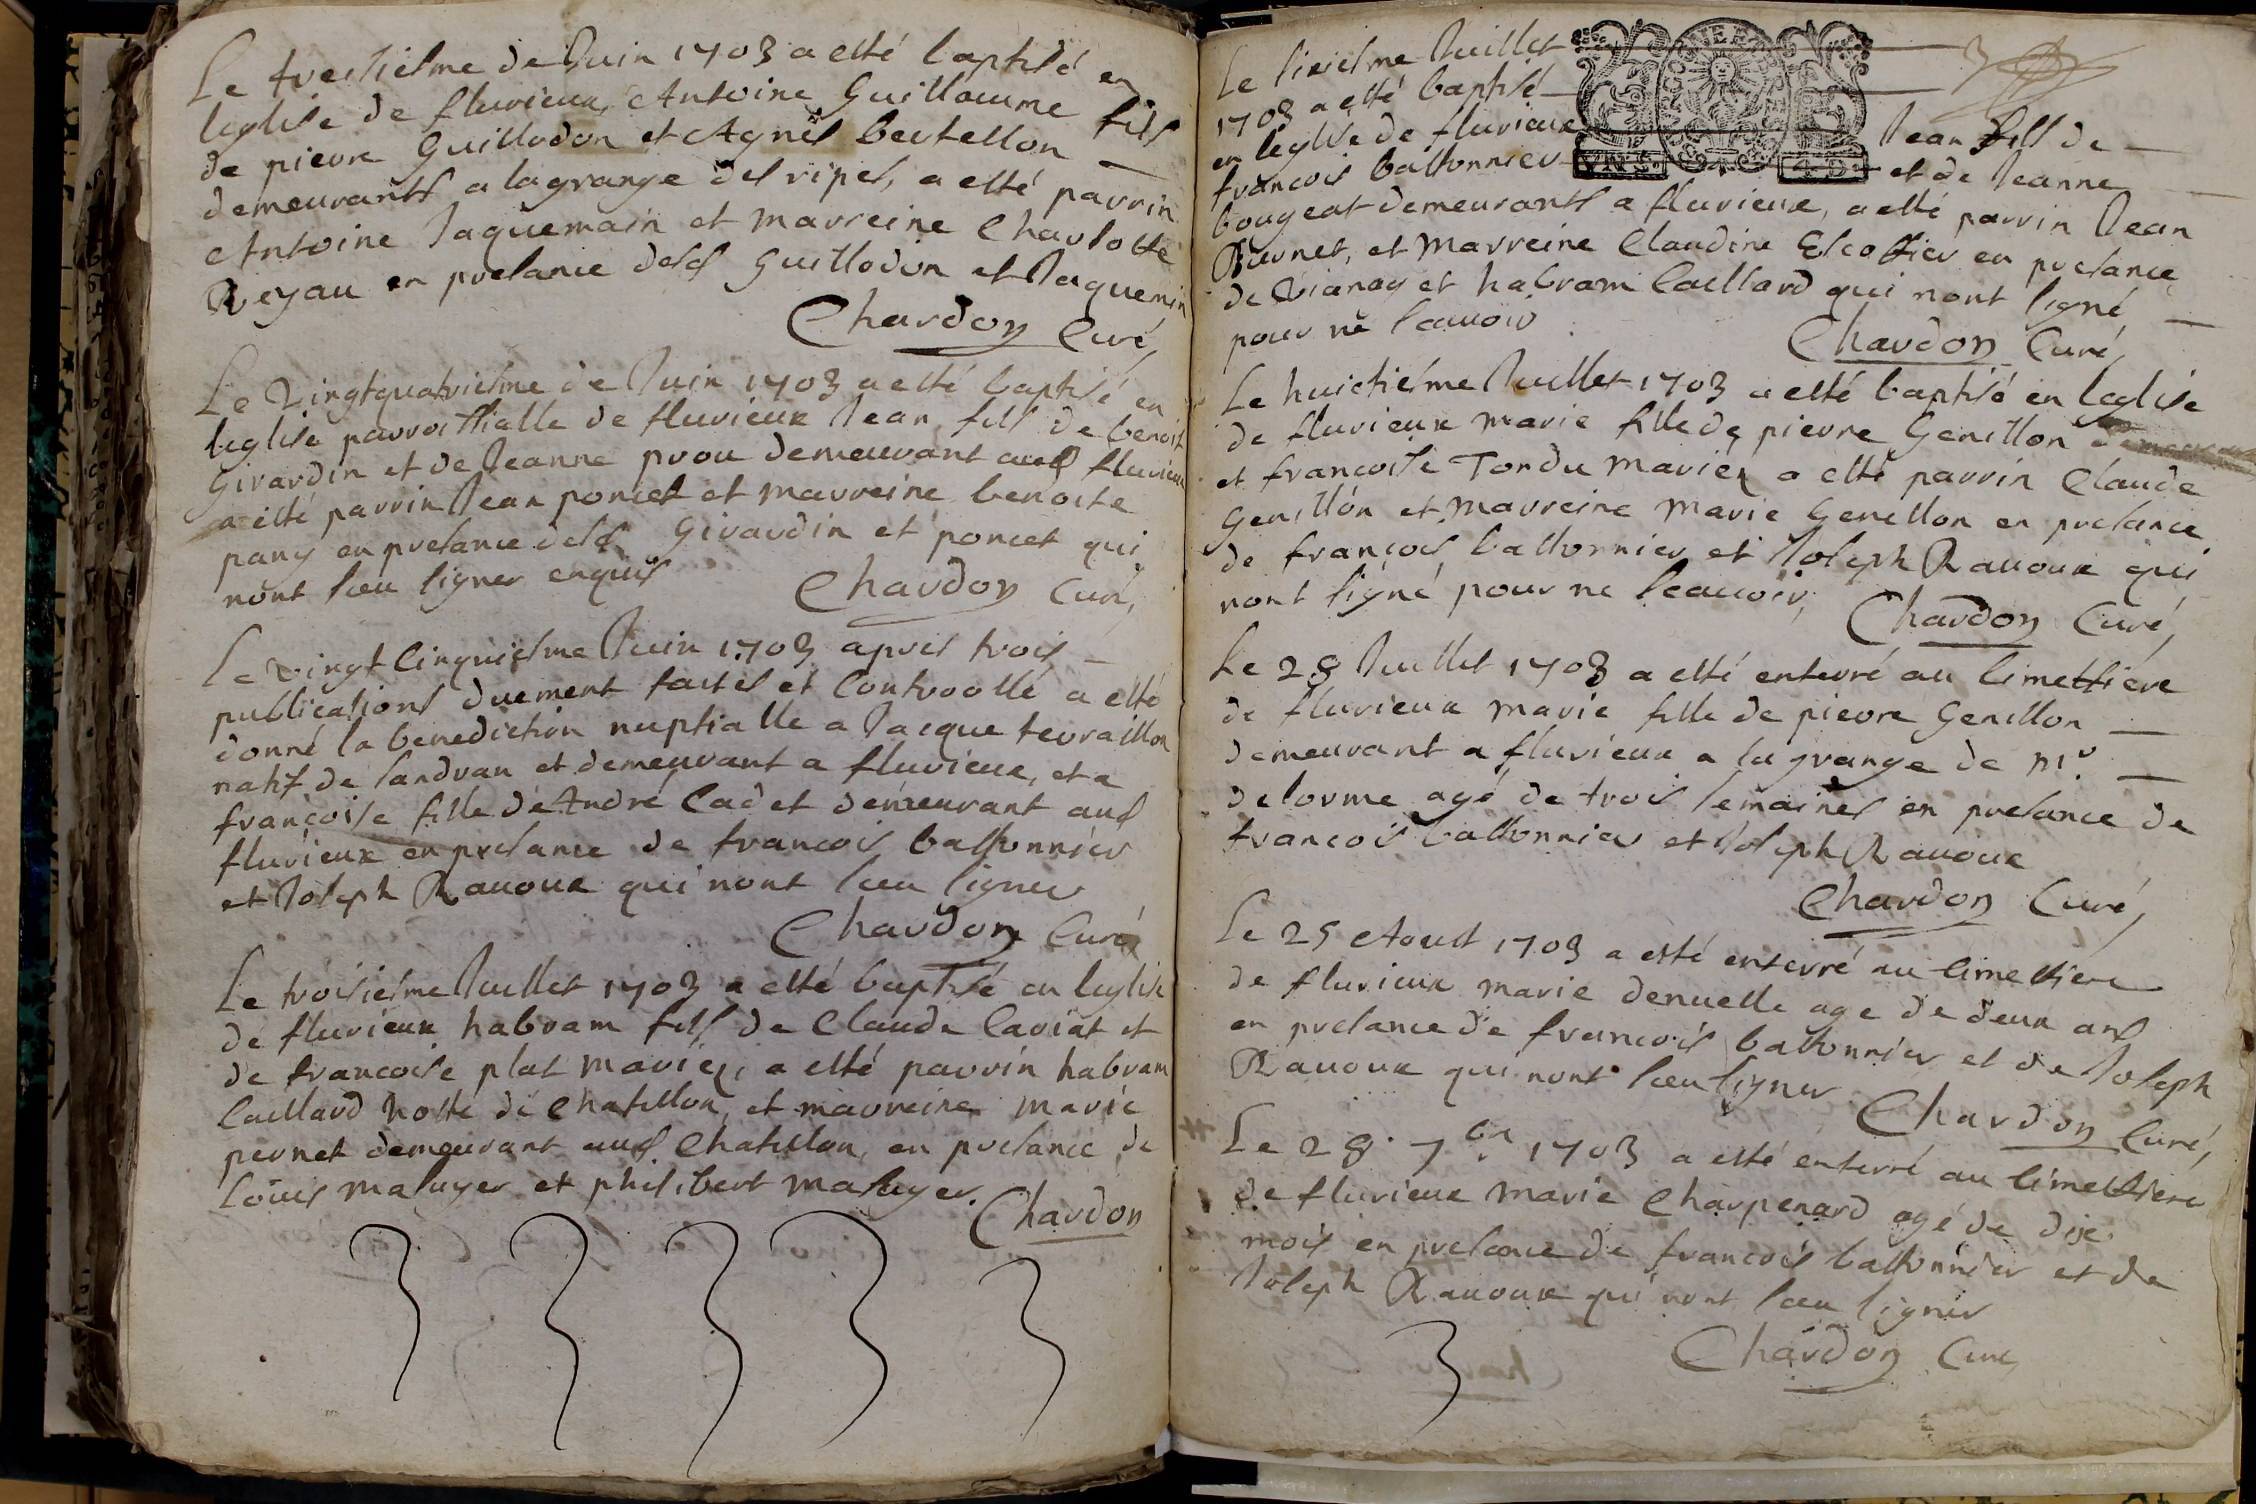 Le treisiesme de Juin 1703 a esté baptisé en
leglise de fluvieux Antoine Guillaume fils
de pierre Guillodon et Agnés bertellon
demeurants a la grange des ripes, a esté parrin
Antoine Jaquemain et marreine Charlotte
Reyau en presance desd Guillodon et Jaquemin
Chardon Curé,
Le Vingtquatriesme de Juin 1703 a esté baptisé en
leglise parroissialle de fluvieux Jean fils de benoit
Girardin et de Jeanne prou demeurant aud fluvieux
a esté parrin Jean poncet et marreine benoite
pany en presance desd Girardin et poncet qui
nont sceu signer enquis
Chardon Curé,
Le vingt cinquiesme Juin 1703 apres trois
publications duement faites et controollé a esté
donné la benediction nuptialle a Jacque terraillon
natif de landran et demeurant a fluvieux, et a
françoise fille de André Cadet demeurant aud
fluvieux en presance de francois bastonnier
et Joseph Ravoux qui nont sceu signer
Chardon Curé
Le troisiesme Juillet 1703 a esté baptisé en leglise
de fluvieux habram fils de Claude Cariat et
de francoise plat mariez, a esté parrin habram
Caillard hoste de Chatillon, et marreine marie
pernet demeurant aud Chatillon, en presance de
Loüis masuyer et philibert masuyer.
Chardon
Le sixiesme Juillet
1703 a esté baptisé
en leglise de fluvieux Jean fils de
francois bastonnier et de Jeanne
bougeat demeurants a fluvieux, a esté parrin Jean
Burnet, et marreine Claudine Escoffier en presance
de Vianay et habram Caillard qui nont signé
pour ne scauoir
Chardon Curé,
Le huictiésme Juillet 1703 a esté baptisé en leglise
de fluvieux marie fille de pierre Genillon
et francoise Tondu mariez a esté parrin Claude
Genillon et marreine marie Genillon en presance
de françois bastonnier et Joseph Ravoux qui
nont signé pour ne scauoir,
Chardon Curé,
Le 28 Juillet 1703 a esté enterré au simettiére
de fluvieux marie fille de pierre Genillon
demeurant a fluvieux a la grange de Mr.
delorme agé de trois semaines en presance de
francois bastonnier et Joseph Ravoux
Chardon Curé,
Le 25 Aoust 1703 a esté enterré au simettiere
de fluvieux marie denuelle age de deux ans
en presance de francois bastonnier et de Joseph
Ravoux qui nont sceu signer
Chardon Curé,
Le 28. 7bre 1703 a esté enterré au simettiere
de fluvieux marie Charpenard agé de dix
mois en presance de francois bastonnier et de
Joseph Ravoux qui nont sceu signer
Chardon Curé,